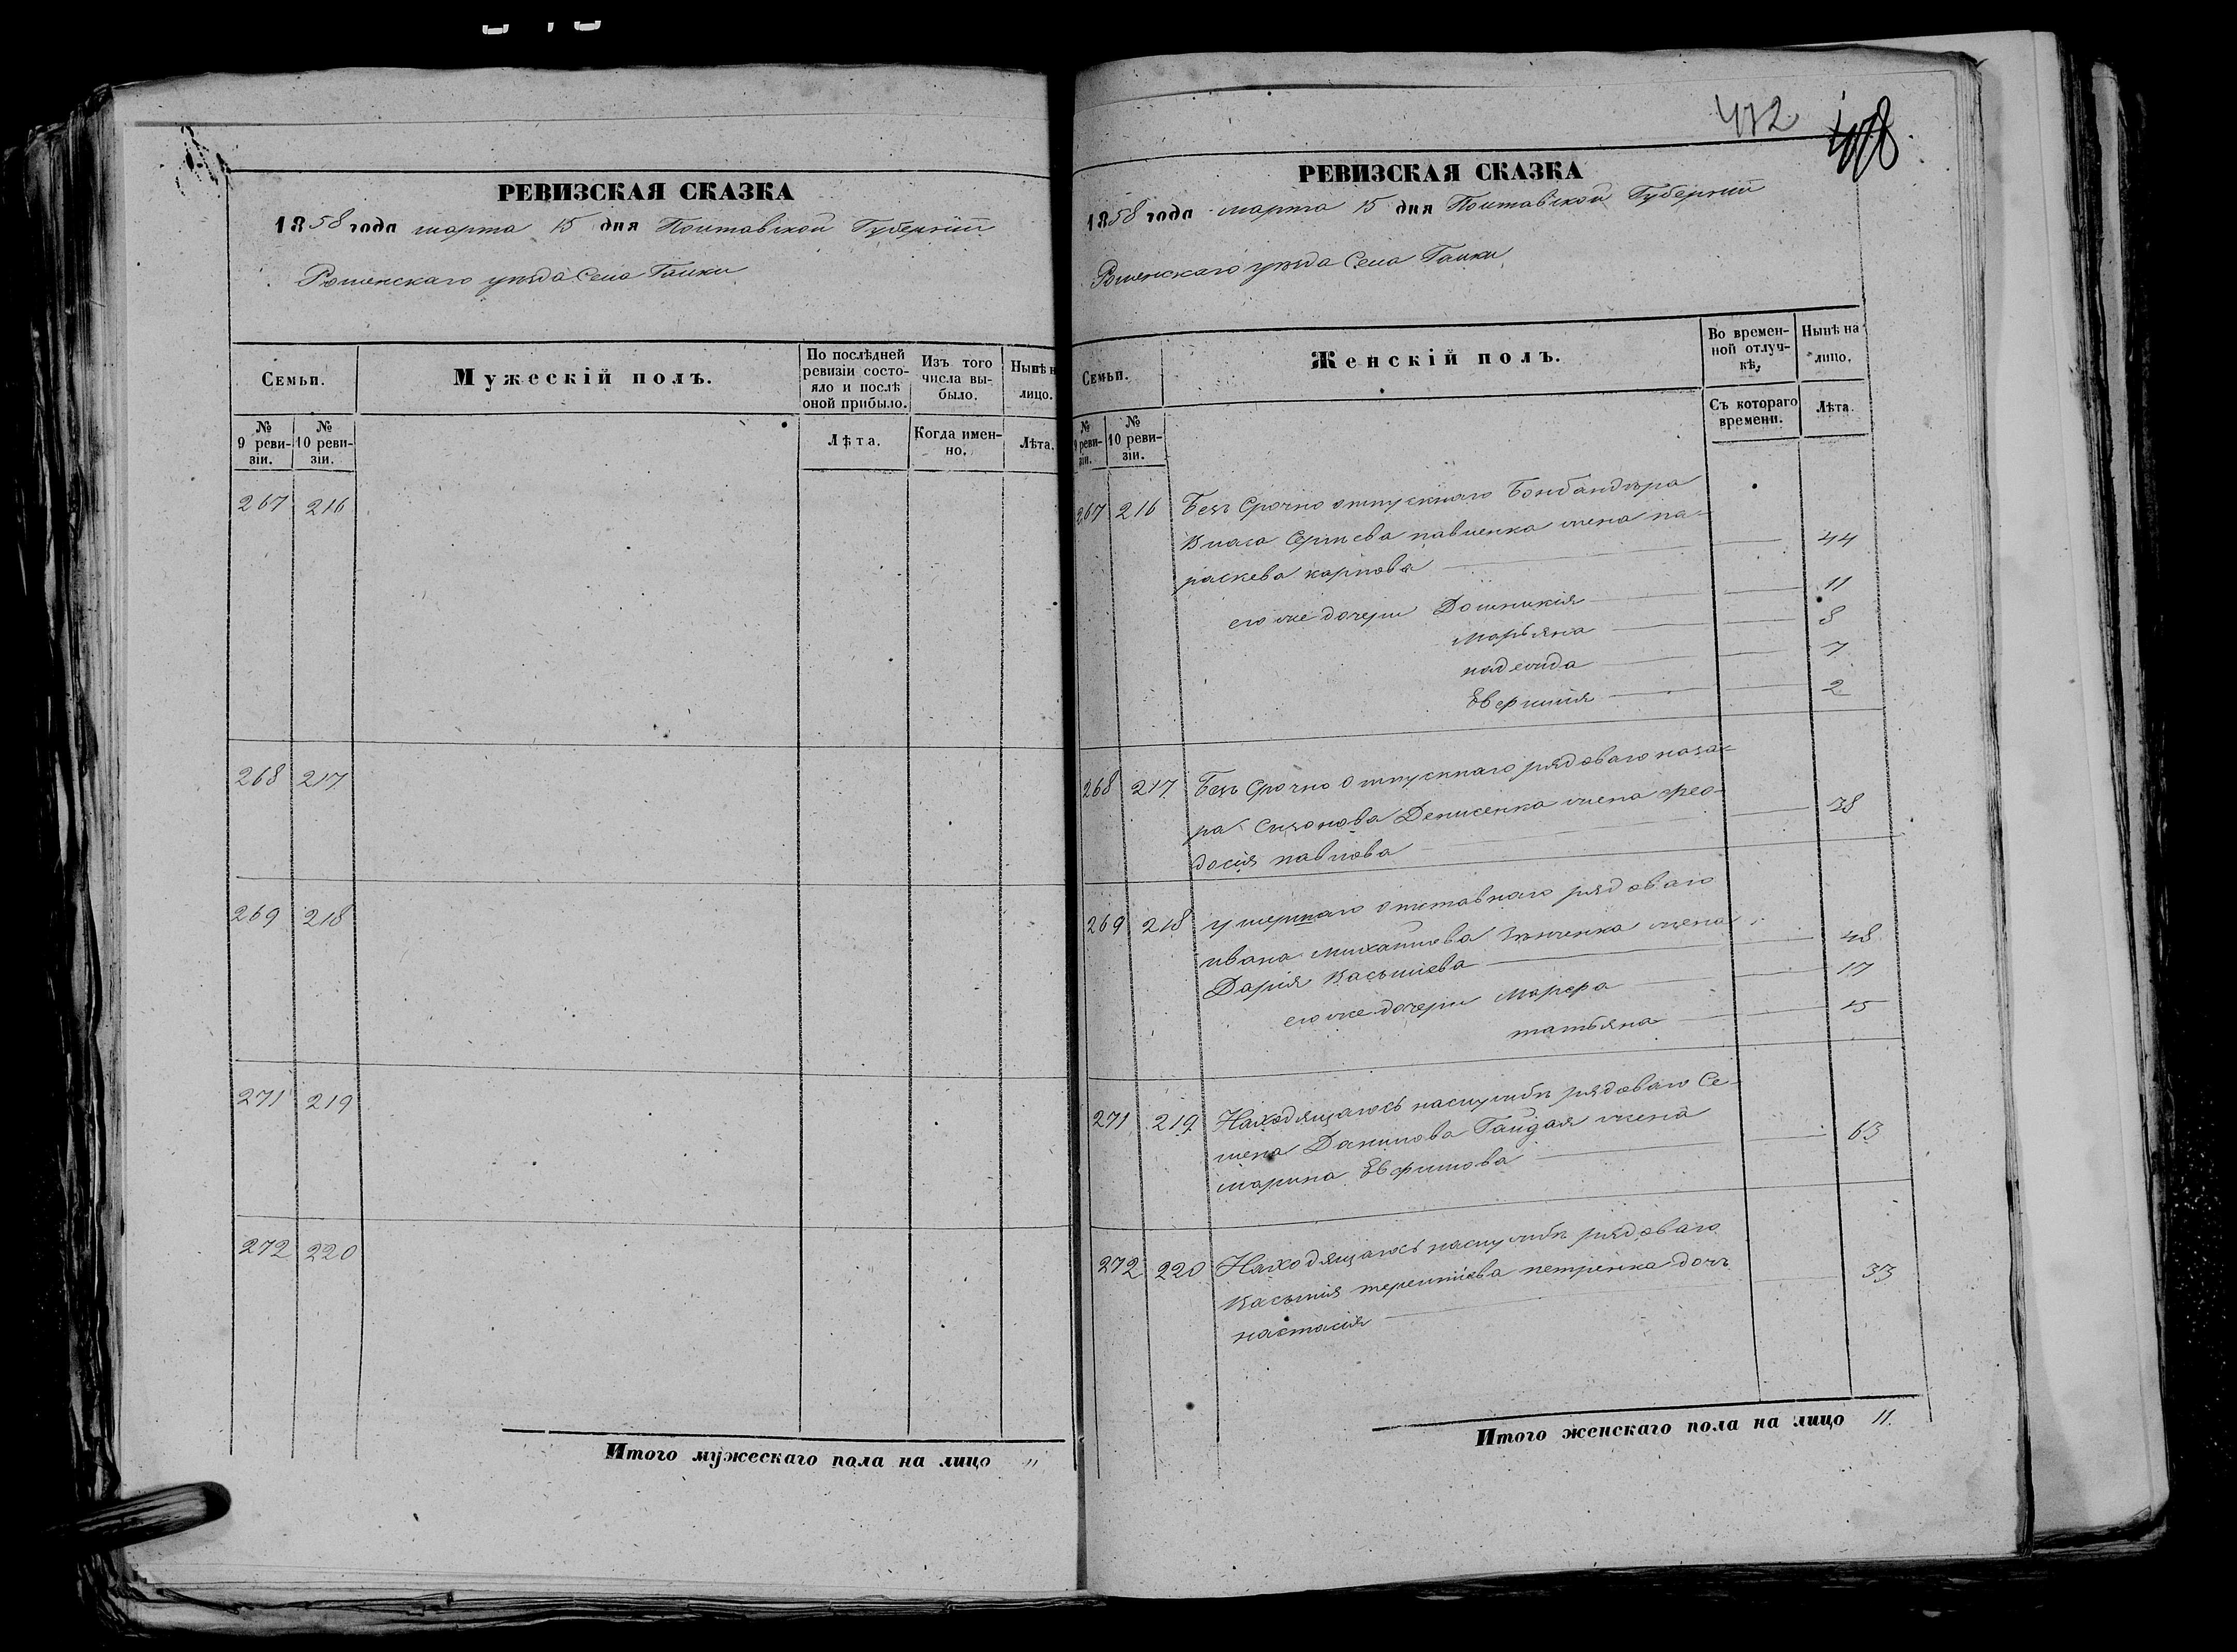 РЕВИЗСКАЯ СКАЗКА
1858 года марта 15 дня Полтавской Губерніи
Роменскаго уѣзда Села Галки
Семьи.
Мужескій полъ.
По послѣдней ревизіи состояло и послѣ оной прибыло.
Изъ того числа выбыло.
Нынѣ н
лицо.
№ 9 ревизіи.
№ 10 ревизіи.
Лѣта.
Когда именно.
Лѣта.
267 216
268 217
269 218
271 219
272 220
Итого мужескаго пола на лицо "
432
РЕВИЗСКАЯ СКАЗКА
1858 года марта 15 дня Полтавской Губерніи
Роменскаго уѣзда Села Галки
Семьи.
Женскій полъ.
Во временной отлучкѣ.
Нынѣ на лицо.
№ 9 ревизіи.
№ 10 ревизіи.
Съ котораго времени.
Лѣта.
267 216 Безъ Срочно отпускнаго Бомбандѣра
Власа Сергиева павленка жена па-
раскева карпова 44
его же дочери Домникія 11
марьяна 8
надежда 7
Евфимія 2
268 217 Безъ Срочно Отпускнаго рядоваго наза-
ра Сизонова Денисенка жена фео-
досия павлова 38
269 218 умершаго отставнаго рядоваго
ивана михайлова жена
Дария Васылиева 48
его же дочери Марфа 17
татьяна 15
271 219 Находящагось наслужбѣ рядоваго Се-
мена Данилова Гайдая жена
марина Евфимова 63
272 220 Находящагось наслужбѣ рядоваго
Василия терентиева петренка дочь
настасия 33
Итого женскаго пола на лицо 11.